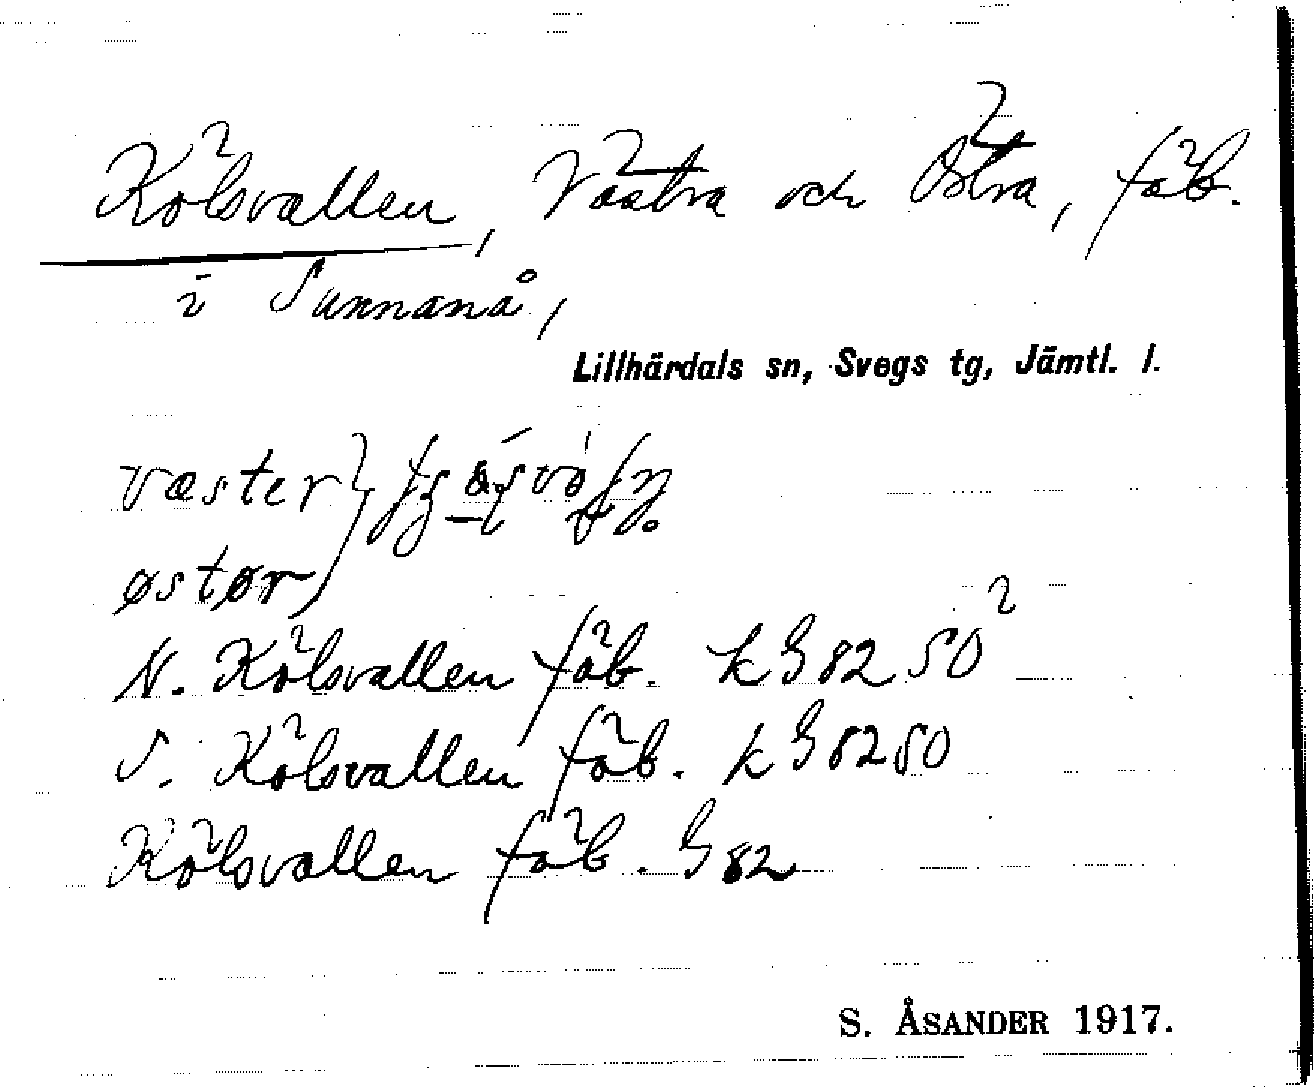 Kölsvallen, Västra och Östra, fäb.
i Sunnanå,
Lillhärdals sn, Svegs tg, Jämtl. l.
væster
østør
N. Kölsvallen fäb. k G 82 50²
S. Kölsvallen fäb. k G 82 50
Kölsvallen fäb. G 82
S. ÅSANDER 1917.